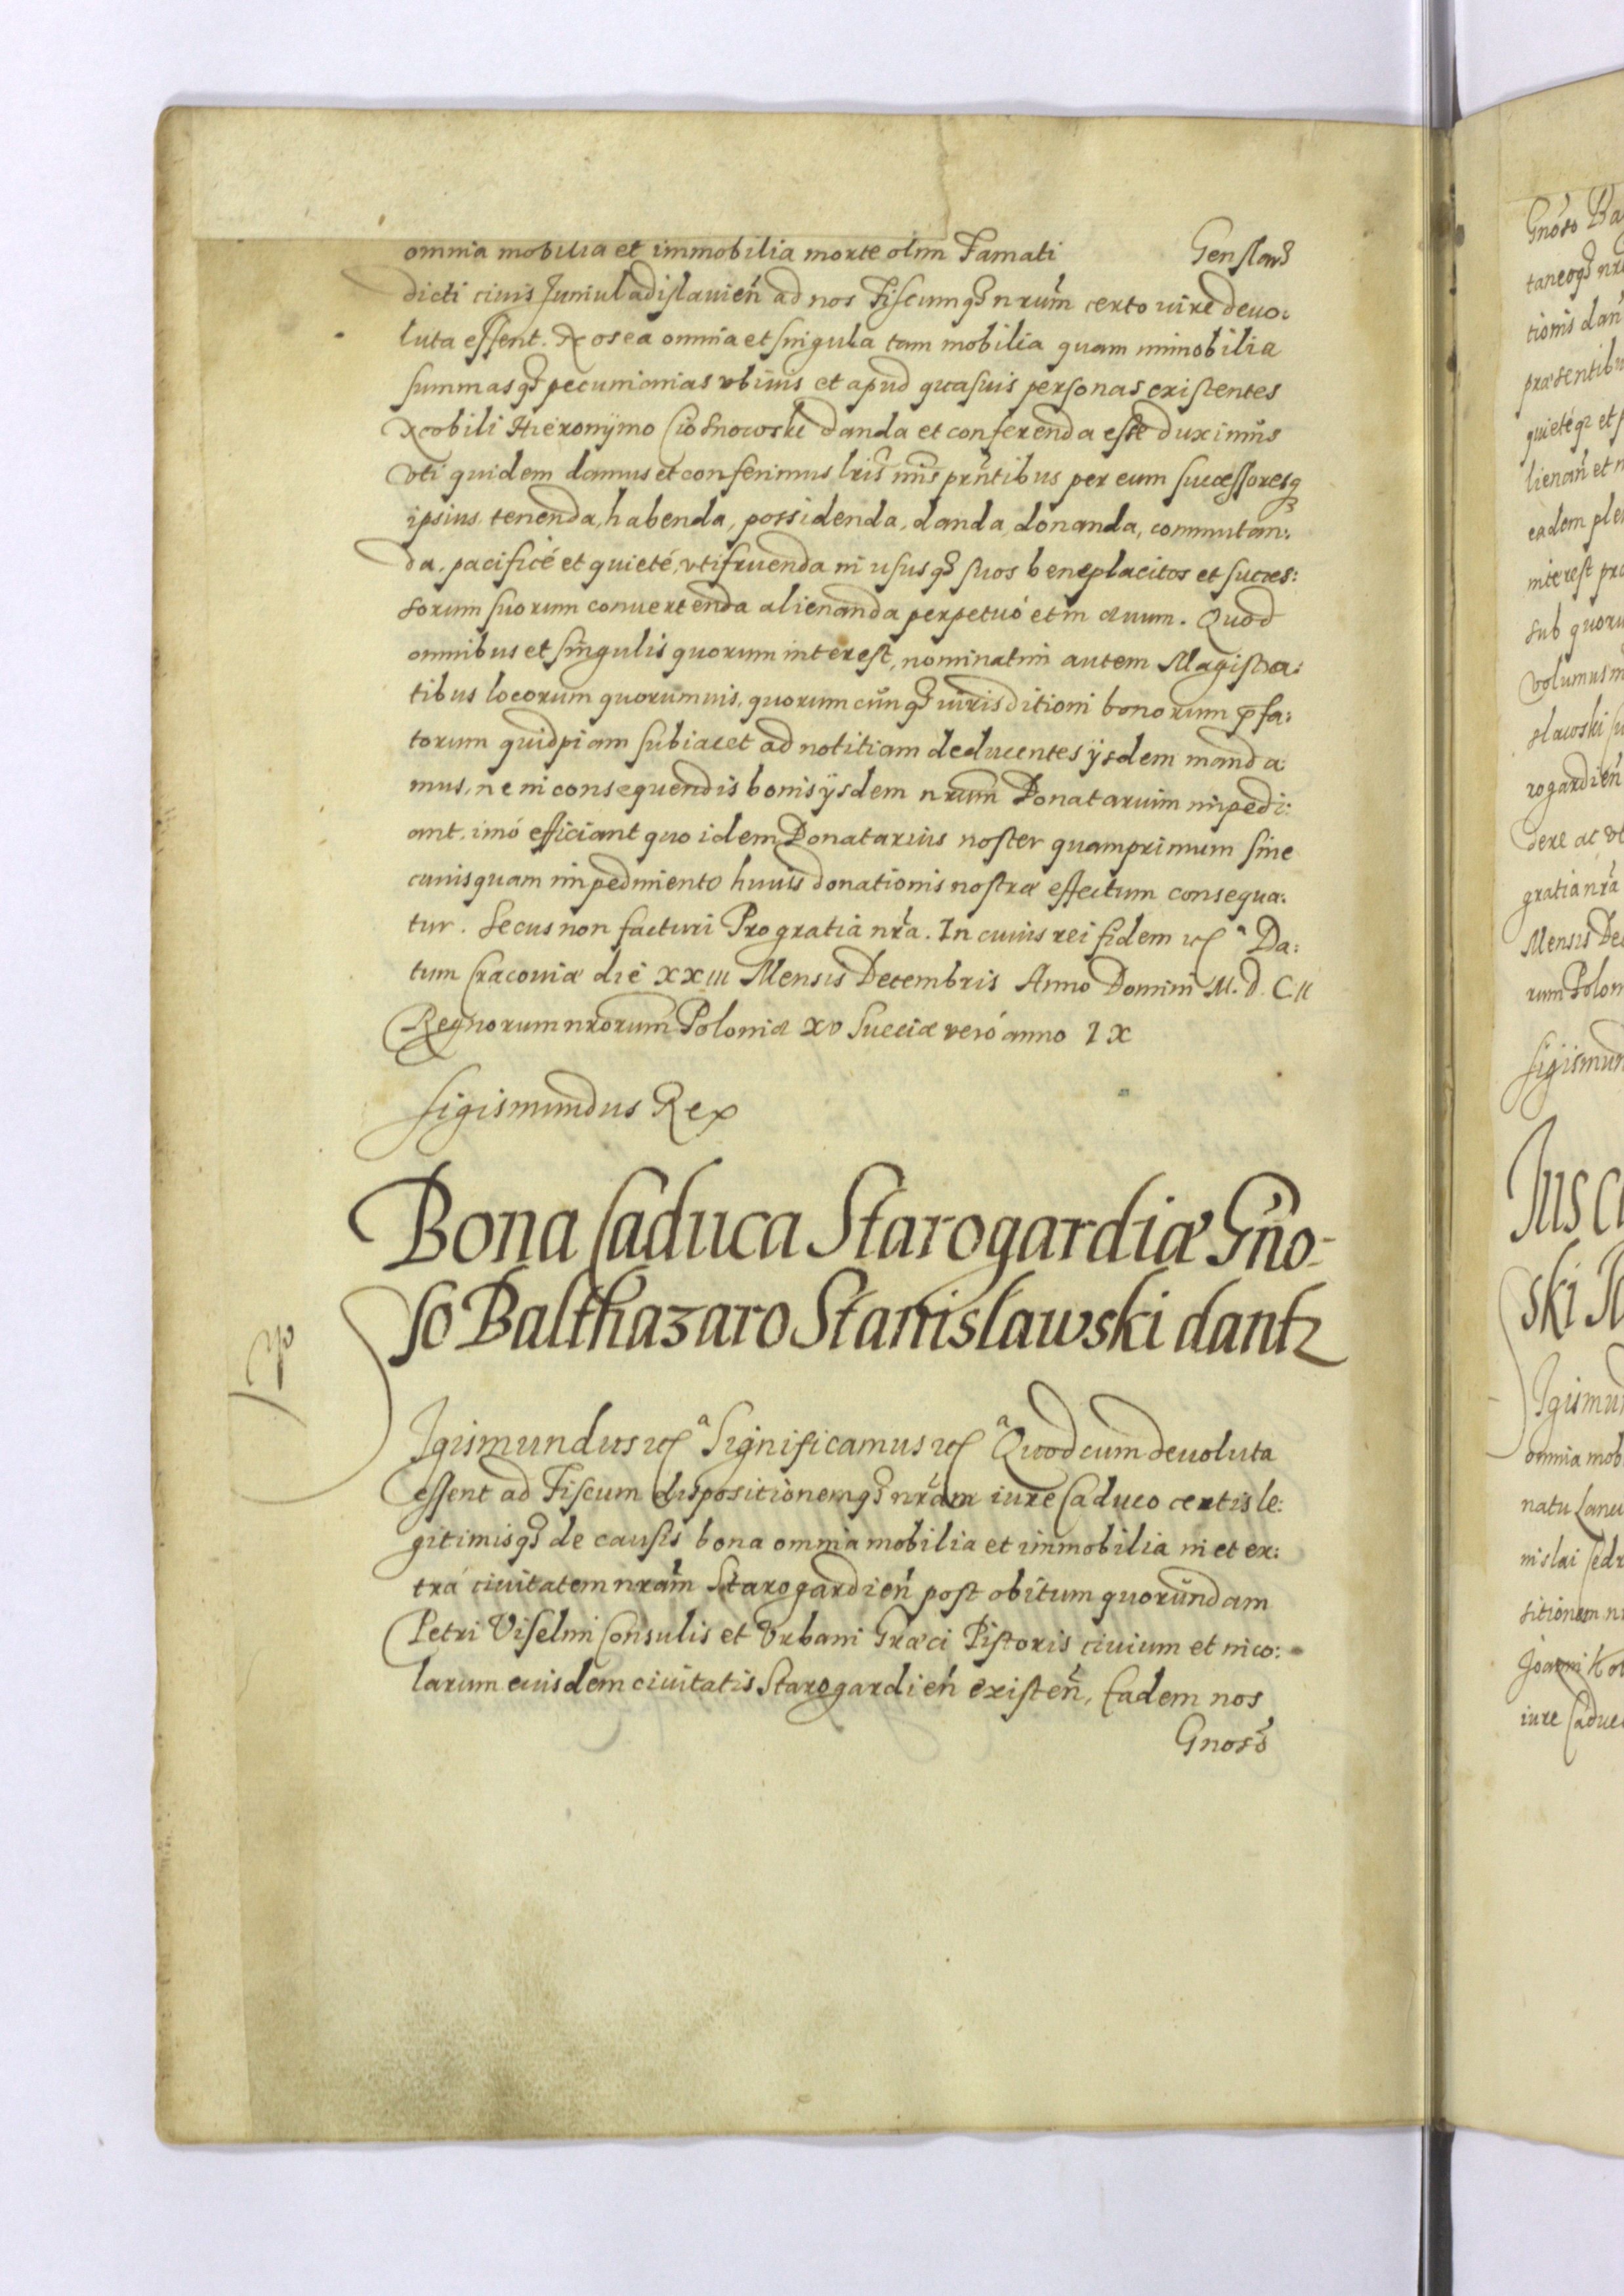 omnia mobilia et immobilia morte olim Famati Genslar
dicti ciuis Juniuladislauień ad nos Fiscumq3 nrum certo iure deuo:
luta essent. Nos ea omnia et singula tam mobilia quam immobilia
summasq3 pecuniarias vbiuis et apud quasuis personas existentes
Nobili Hieronÿmo Ciosnowski danda et conferenda esse duximus
vti quidem damus et conferimus lris nris prntibus per eum successoresq3
ipsius tenenda, habenda, possidenda, danda donanda, commutan:
da, pacificé et quieté, vtifruenda in usus q3 suos beneplacitos et succes:
sorum suorum conuertenda alienanda perpetuó et in æuum. Quod
omnibus et singulis quorum interest, nominatim autem Magistra:
tibus locorum quorumuis, quorum cunq3 iurisditioni bonorum p̄fa:
torum quidpiam subiacet ad notitiam deducentes ijsdem manda
mus, ne in consequendis bonis ijsdem nrum Donatarium impedi:
ant. imó efficiant quo idem Donatarius noster quamprimum sine
cuiusquam impedimento huius donationis nostræ effectum consequa:
tur. Secus non facturi Pro gratia nra. In cuius rei fidem etc a Da:
tum Cracouiæ die XXIII Mensis Decembris Anno Domini M. D. C II
Regnorum nrorum Poloniæ XV Sueciæ veró anno IX
Sigismundus Rex
Bona Caduca Starogardiæ Gno-
so Balthazaro Stanislawski dantz
Sigismundus etc a Significamus etc a Quod cum deuoluta
essent ad Fiscum dispositionemq3 nram iure Caduco certis le:
gitimisq3 de causis bona omnia mobilia et immobilia in et ex:
trá ciuitatem nram Starogardień post obitum quorundam
Petri Viselmi Consulis et Vrbani Græci Pistoris ciuium et inco:
larum eiusdem ciuitatis Starogardień existeń, Eadem nos
Gnoso
Gnoso Ba
taneoq3 nr
tionis dan
præsentibu
quieté q3 et p
lienań et
eadem ple
interest pro
sub quoru
volumus
slawski su
rogardień
dere ac vt
gratia nra
Mensis De
rum Polon
Sigismun
Ius c
ski
Sigismun
omnia mob
natu
nislai
sitionem n
Joanni
iure Caduc